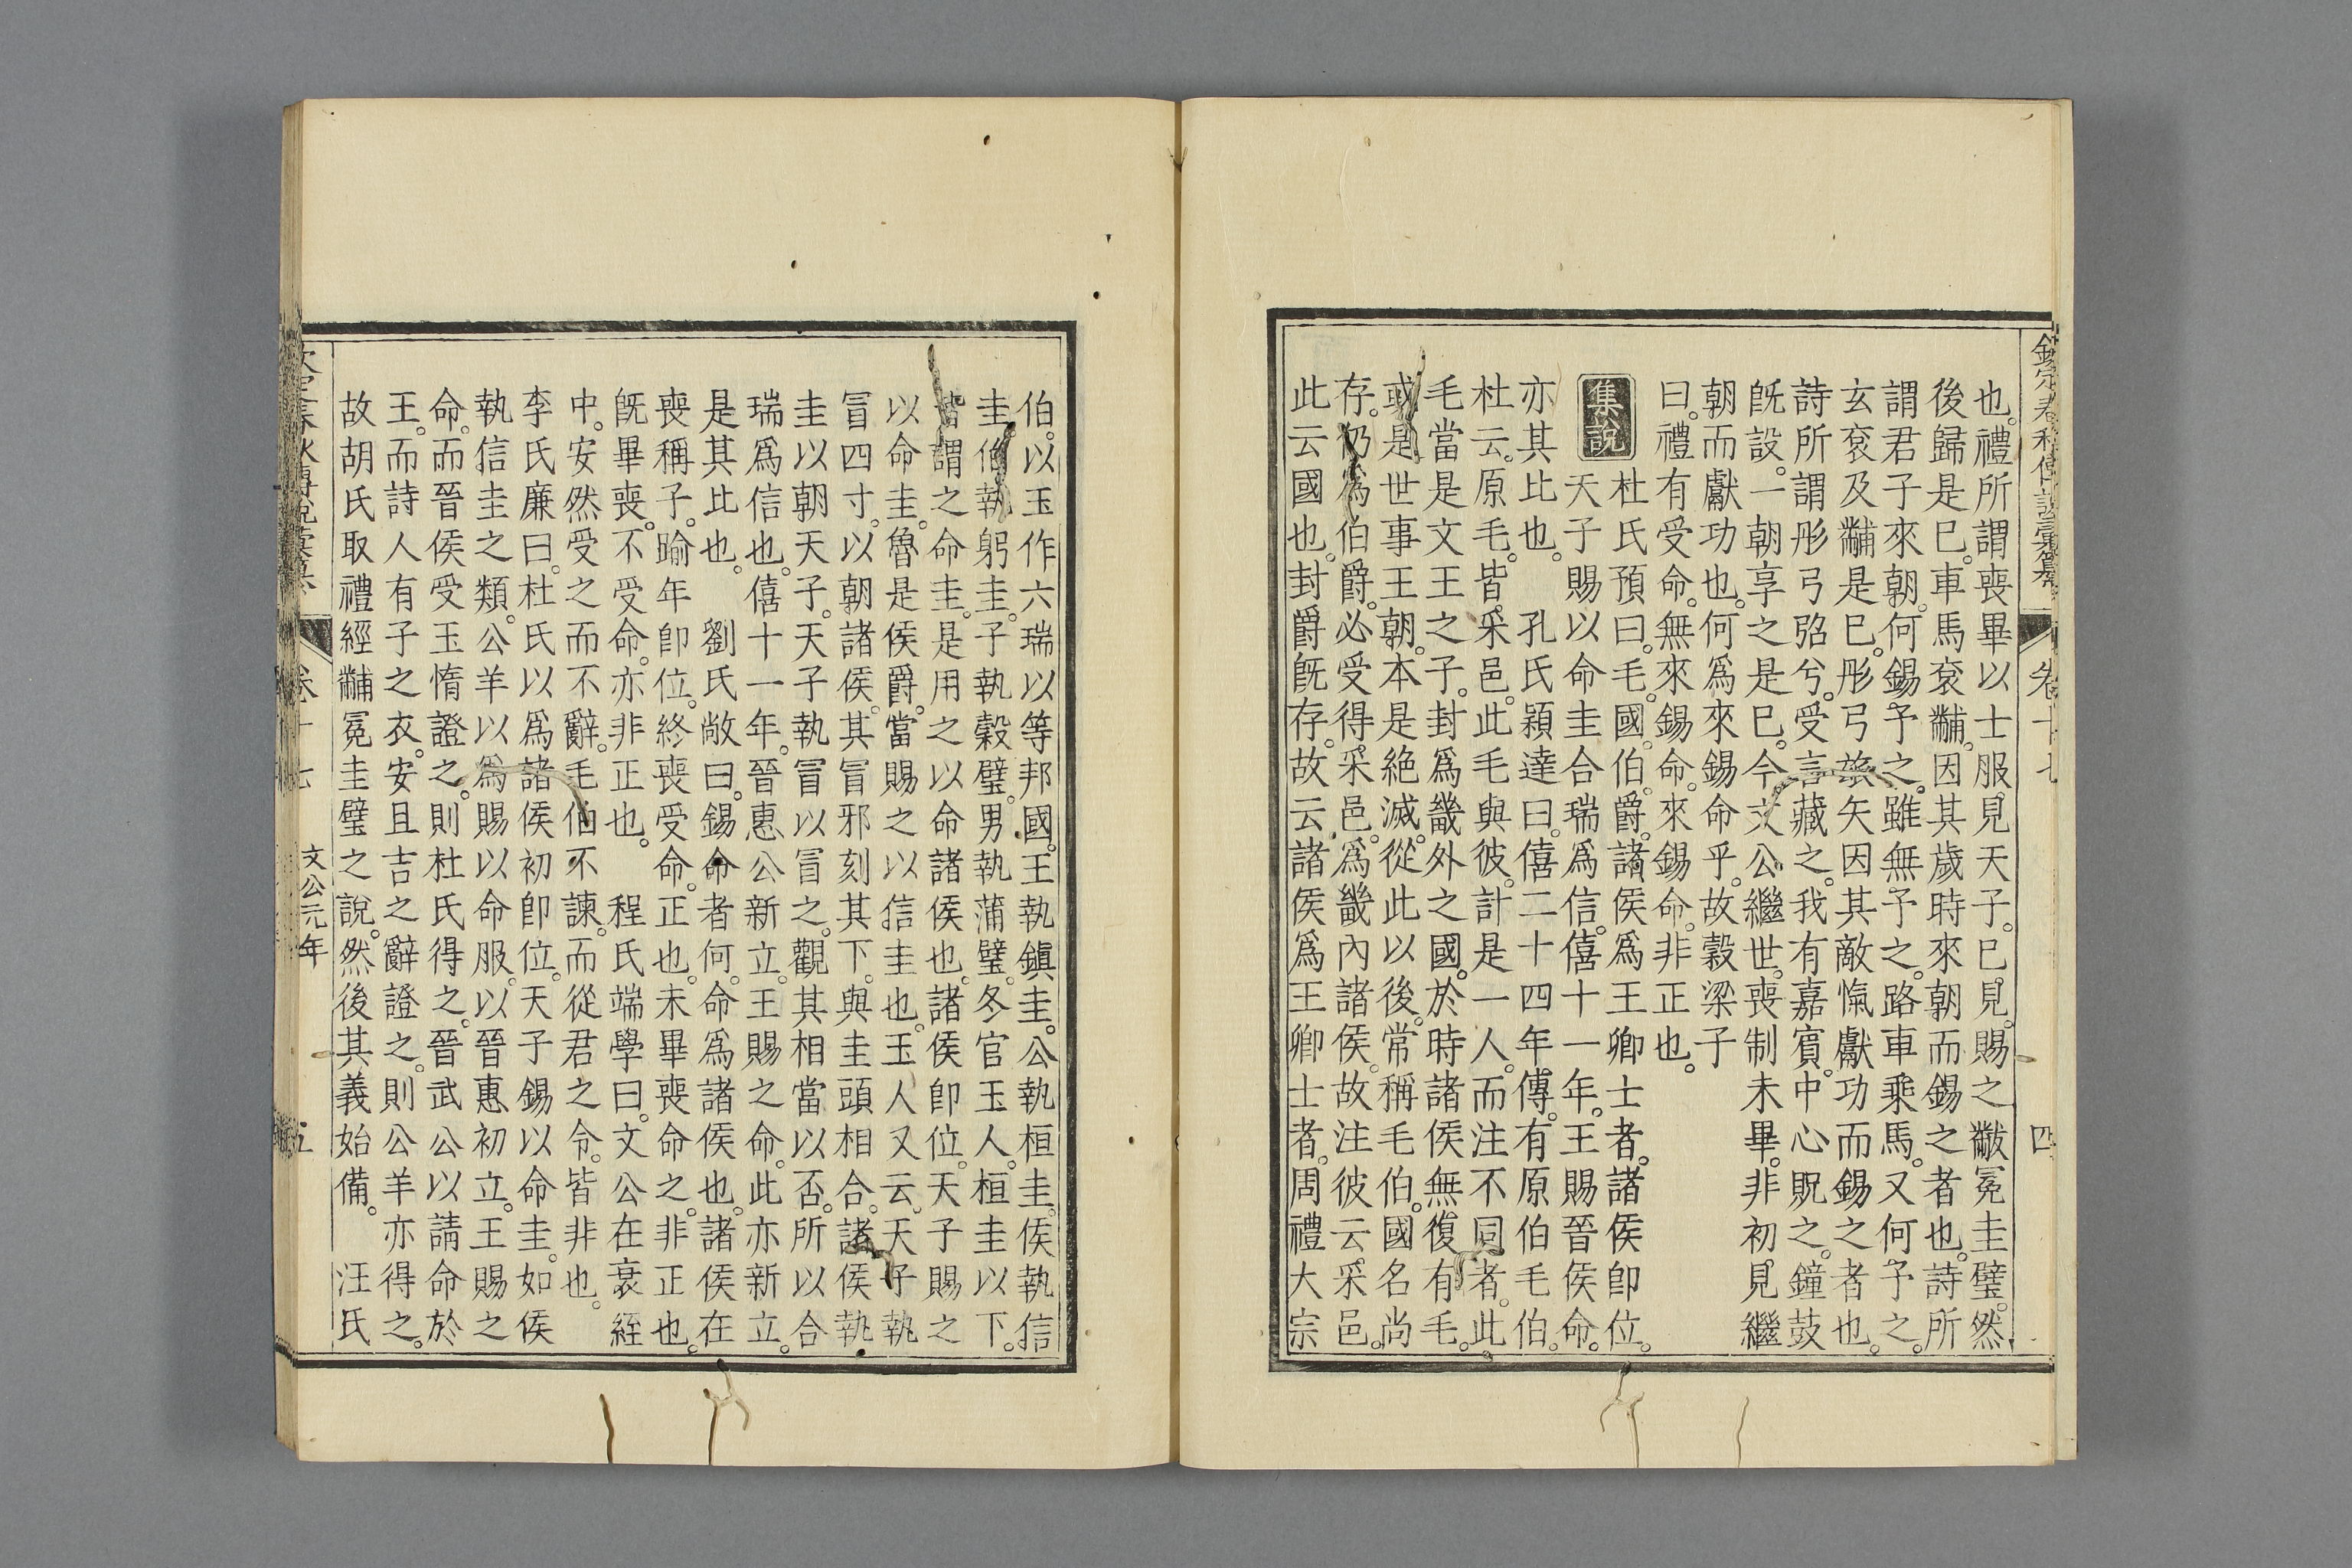 欽定春秋傳說彙纂 卷十七 四
也。禮所謂喪畢以士服見天子。已見。賜之黻冕圭璧。然
後歸是巳。車馬袞黼。因其歲時來朝而錫之者也。詩所
謂君子來朝。何錫予之。雖無予之。路車乘馬。又何予之。
玄袞及黼是巳。彤弓旅矢因其敵愾獻功而錫之者也。
詩所謂彤弓弨兮。受言藏之。我有嘉賓。中心貺之。鐘鼓
旣設。一朝享之是巳。今文公繼世。喪制未畢。非初見繼
朝而獻功也。何爲來錫命乎。故穀梁子
曰。禮有受命。無來錫命。來錫命。非正也。
集說 杜氏預曰。毛。國。伯。爵。諸侯爲王卿士者。諸侯卽位。
天子賜以命圭合瑞爲信。僖十一年。王賜晉侯命。
亦其比也。 孔氏穎達曰。僖二十四年傳。有原伯毛伯。
杜云。原毛。皆采邑。此毛與彼。計是一人。而注不同者。此
毛當是文王之子。封爲畿外之國。於時諸侯無復有毛。
或是世事王朝。本是絕滅。從此以後。常稱毛伯。國名尚
存。仍爲伯爵。必受得采邑。爲畿內諸侯。故注彼云。采邑。
此云國也。封爵旣存。故云諸侯爲王卿士者。周禮大宗
伯。以玉作六瑞以等邦國。王執鎭圭。公執桓圭。侯執信
圭。伯執躬圭。子執穀璧。男執蒲璧。冬官玉人。桓圭以下。
皆謂之命圭。是用之以命諸侯也。諸侯卽位。天子賜之
以命圭。魯是侯爵。當賜之以信圭也。玉人又云。天子執
冒四寸。以朝諸侯。其冒邪刻其下。與圭頭相合。諸侯執
圭以朝天子。天子執冒以冒之。觀其相當以否。所以合
瑞爲信也。僖十一年。晉惠公新立。王賜之命。此亦新立。
是其比也。 劉氏敞曰。錫命者何。命爲諸侯也。諸侯在
喪稱子。踰年卽位。終喪受命。正也。未畢喪命之。非正也。
旣畢喪。不受命。亦非正也。 程氏端學曰。文公在衰絰
中。安然受之而不辭。毛伯不諫。而從君之令。皆非也。
李氏廉曰。杜氏以爲諸侯初卽位。天子錫以命圭。如侯
執信圭之類。公羊以爲賜以命服。以晉惠初立。王賜之
命。而晉侯受玉惰證之。則杜氏得之。晉武公以請命於
王。而詩人有子之衣。安且吉之辭證之。則公羊亦得之。
故胡氏取禮經黼冕圭璧之說。然後其義始備。 汪氏
卷十七 文公元年 五